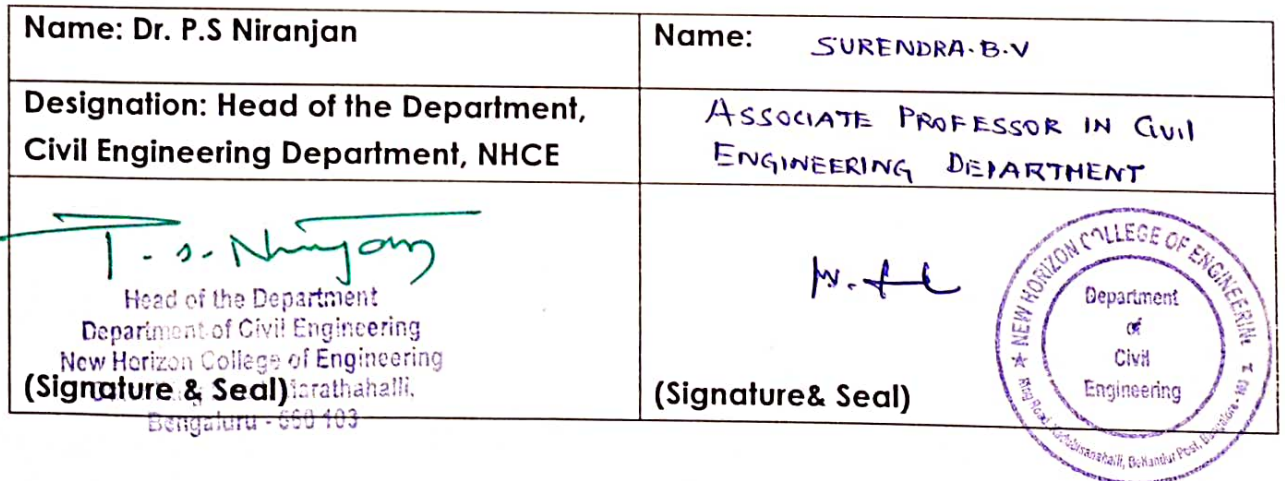 Name: Dr. P.S Niranjan
Name: SURENDRA.B.V
Designation: Head of the Department,
Civil Engineering Department, NHCE
ASSOCIATE PROFESSOR IN CIVIL
ENGINEERING DEPARTMENT
P.S. Niranjan
Head of the Department
Department of Civil Engineering
New Horizon College of Engineering
(Signature & Seal) Marathahalli,
Bengaluru - 560 103
(Signature& Seal)
★ NEW HORIZON COLLEGE OF ENGINEERING
Department
of
Civil
Engineering
Ring Road, Kadubisanahalli, Bellandur Post, Bangalore - 103